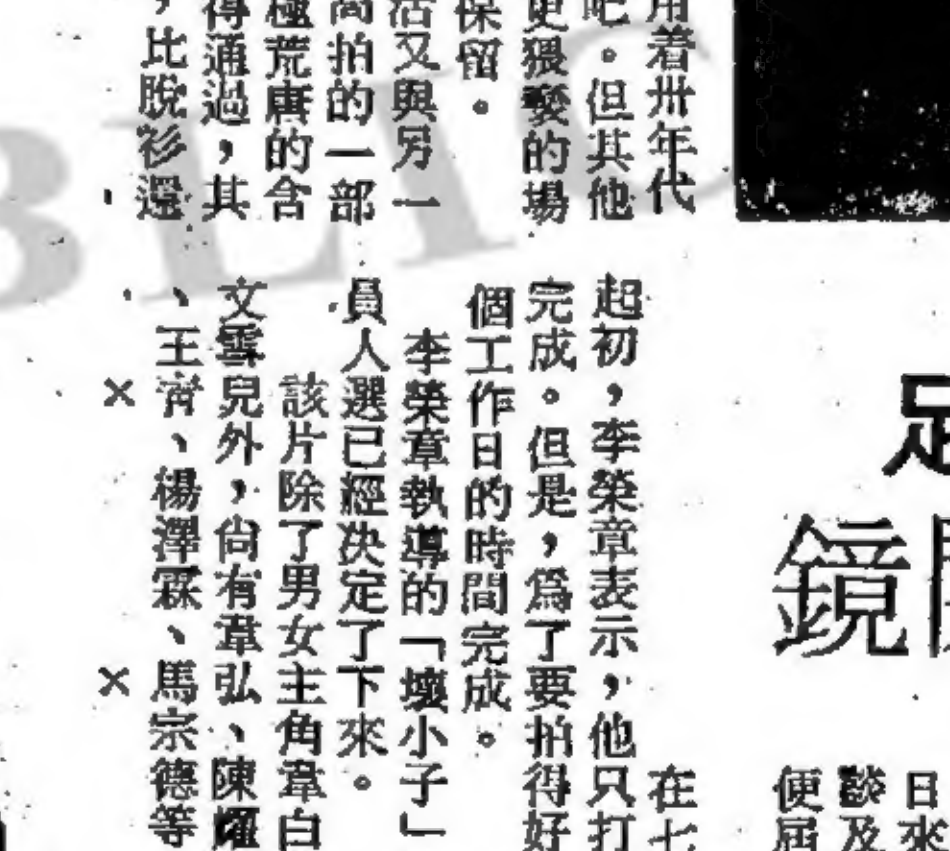 用着卅年代
吧。但其他
更猥褻的場
保留。
活又與另一
高拍的一部
極荒唐的含
得通過,其
,比脫衫還
足
鏡開
日來
談及
便屆
在七
起初,李榮章表示,他只打
完成。但是,爲了要拍得好
個工作日的時間完成。
李榮章執導的「壞小子」
員人選已經決定了下來。
該片除了男女主角韋白
文雪兒外,尙有韋弘、陳耀
、王淯、楊澤霖、馬宗德等
×
×
BLIC